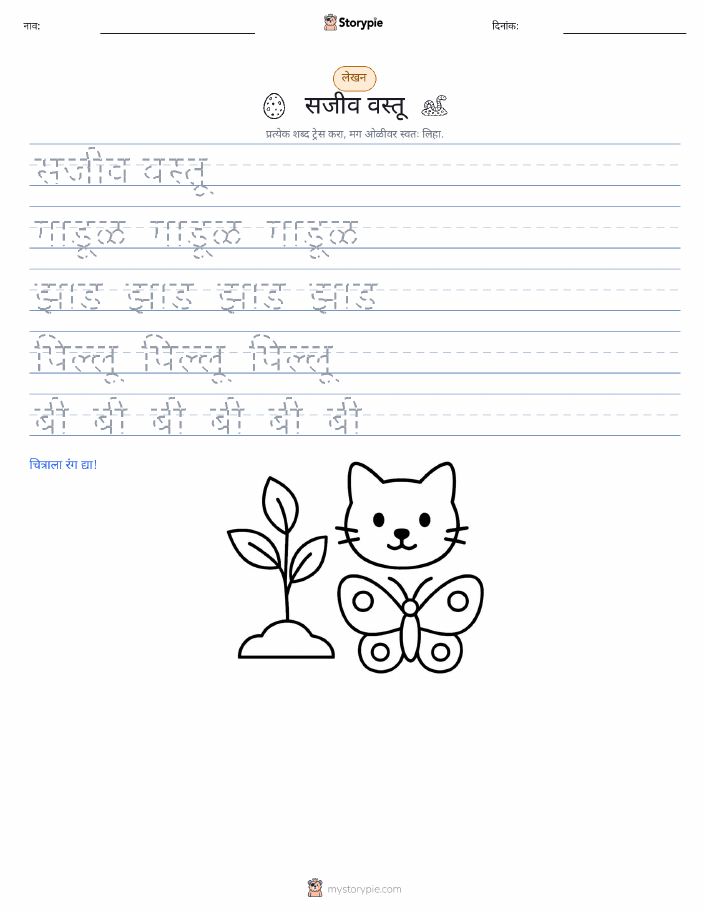 नाव: Storypie दिनांक:
लेखन
सजीव वस्तू
प्रत्येक शब्द ट्रेस करा, मग ओळीवर स्वतः लिहा.
सजीव वस्तू
गांडूळ गांडूळ गांडूळ
झाड झाड झाड झाड
पिल्लू पिल्लू पिल्लू
बी बी बी बी बी बी
चित्राला रंग द्या!
mystorypie.com